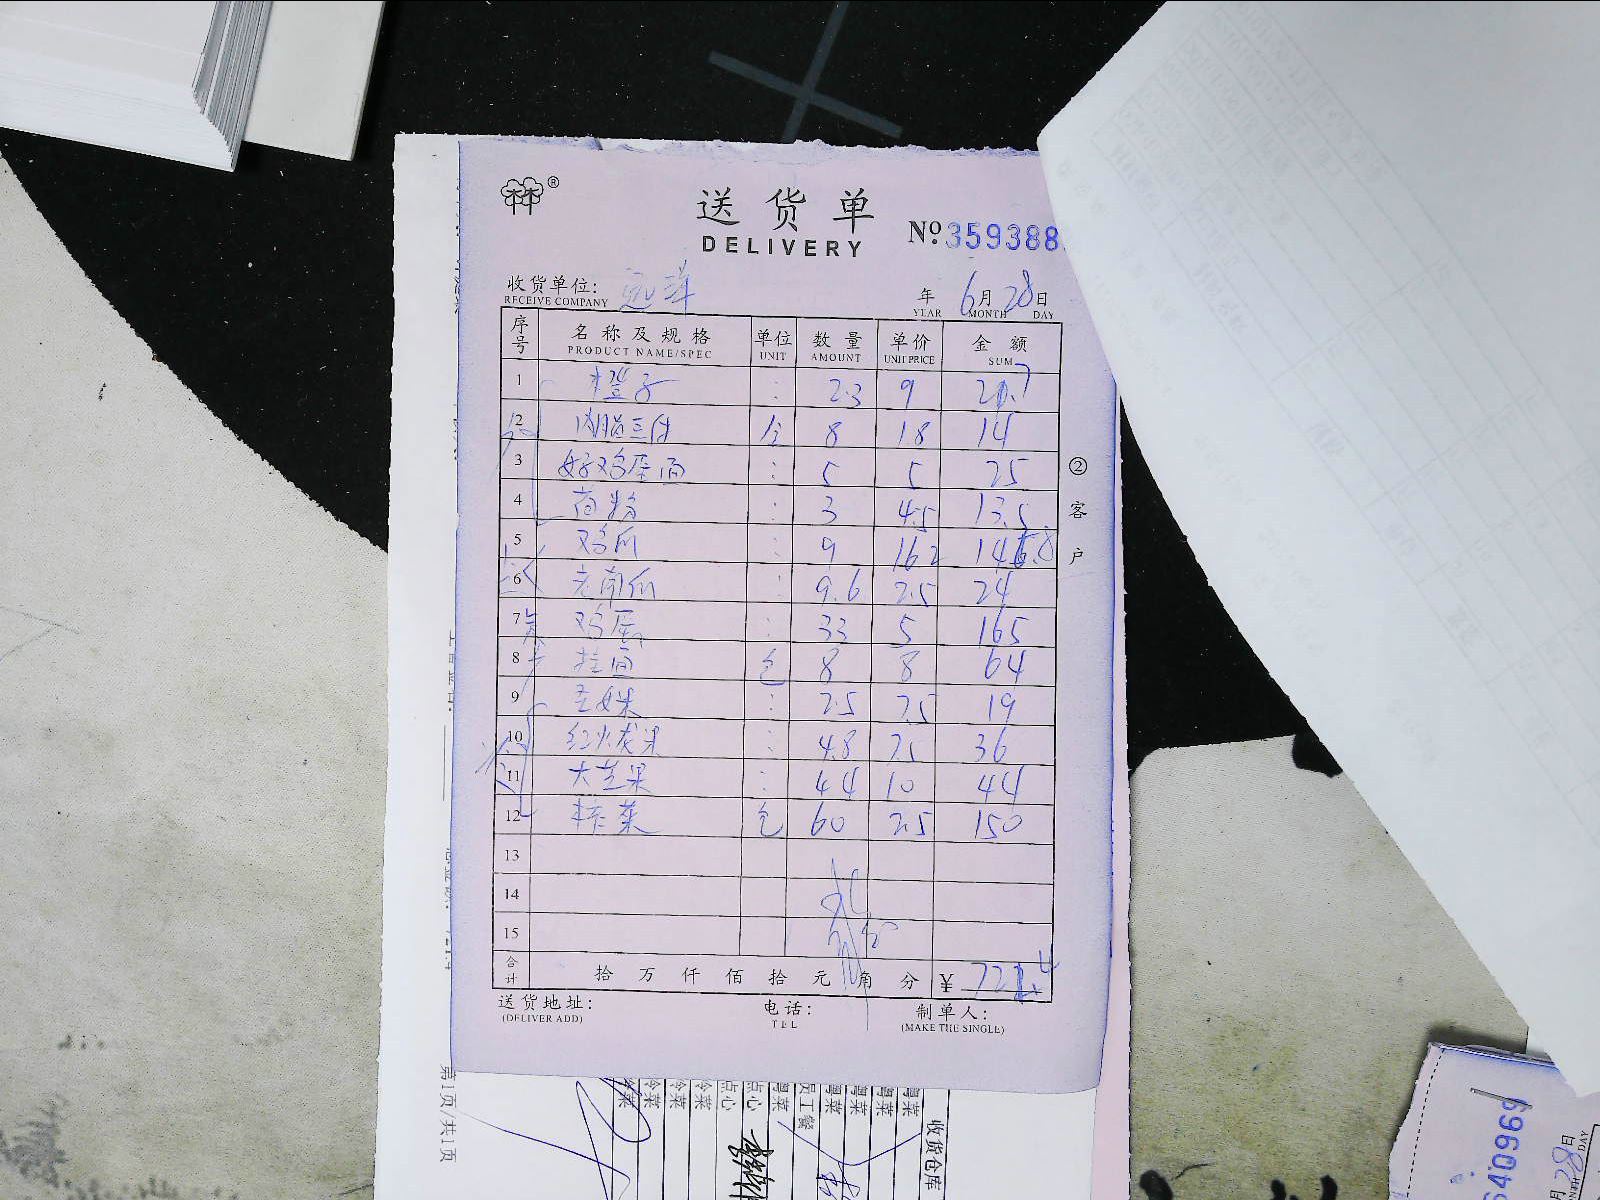 送货单
DELIVERY
№ 359388
收货单位:
RECEIVE COMPANY
年 6月28日
YEAR MONTH DAY
序号 名称及规格 单位 数量 单价 金额
PRODUCT NAME/SPEC UNIT AMOUNT UNIT PRICE SUM
1 橙子 : 2.3 9 20.7
2 8 18 14
3 好鸡蛋面 : 5 5 25
4 : 3 4.5 13.5
5 鸡爪 : 9 16.2 145.8
6 老南瓜 : 9.6 2.5 24
7 鸡蛋 : 33 5 165
8 拉面 包 8 8 64
9 圣女果 : 2.5 7.5 19
10 红火龙果 : 4.8 7.5 36
11 大芒果 : 4.4 10 44
12 榨菜 包 60 2.5 150
13
14
15
合计 拾 万 仟 佰 拾 元 角 分 ¥
送货地址: 电话: 制单人:
(DELIVER ADD) TEL (MAKE THE SINGLE)
② 客户
第1页/共1页
冷菜
冷菜
冷菜
冷菜
点心
点心
粤菜
员工餐
粤菜
粤菜
粤菜
粤菜
收货仓库
640969
28日
DAY